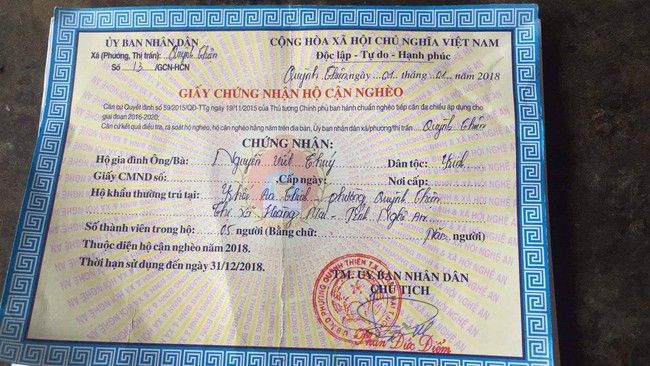 ỦY BAN NHÂN DÂN
CỘNG HÒA XÃ HỘI CHỦ NGHĨA VIỆT NAM
Xã (Phường, Thị trấn): Quỳnh Thiện
Độc lập - Tự do - Hạnh phúc
Số 13 /GCN-HCN
Quỳnh Thiện, ngày 01 tháng 01 năm 2018
GIẤY CHỨNG NHẬN HỘ CẬN NGHÈO
Căn cứ Quyết định số 59/2015/QĐ-TTg ngày 19/11/2015 của Thủ tướng Chính phủ ban hành chuẩn nghèo tiếp cận đa chiều áp dụng cho
giai đoạn 2016-2020;
Căn cứ kết quả điều tra, rà soát hộ nghèo, hộ cận nghèo hằng năm trên địa bàn, Ủy ban nhân dân xã/phường/thị trấn Quỳnh Thiện
CHỨNG NHẬN:
Hộ gia đình Ông/Bà: Nguyễn Viết Thuý Dân tộc: Kinh
Số giấy CMND số: Cấp ngày: Nơi cấp:
Hộ khẩu thường trú tại: phường Quỳnh Thiện
Thị xã Hoàng Mai - Tỉnh Nghệ An
Số thành viên trong hộ: 05 người (Bằng chữ: Năm người)
Thuộc diện hộ cận nghèo năm 2018.
Thời hạn sử dụng đến ngày 31/12/2018.
TM. ỦY BAN NHÂN DÂN
CHỦ TỊCH
Phan Đức Diễm